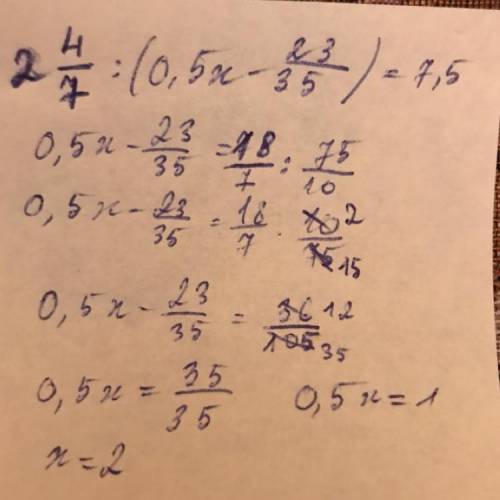 2 4/7 : (0,5x - 23/35) = 7,5
0,5x - 23/35 = 18/7 : 75/10
0,5x - 23/35 = 18/7 · 10/75 2/15
0,5x - 23/35 = 36/105 12/35
0,5x = 35/35 0,5x = 1
x = 2